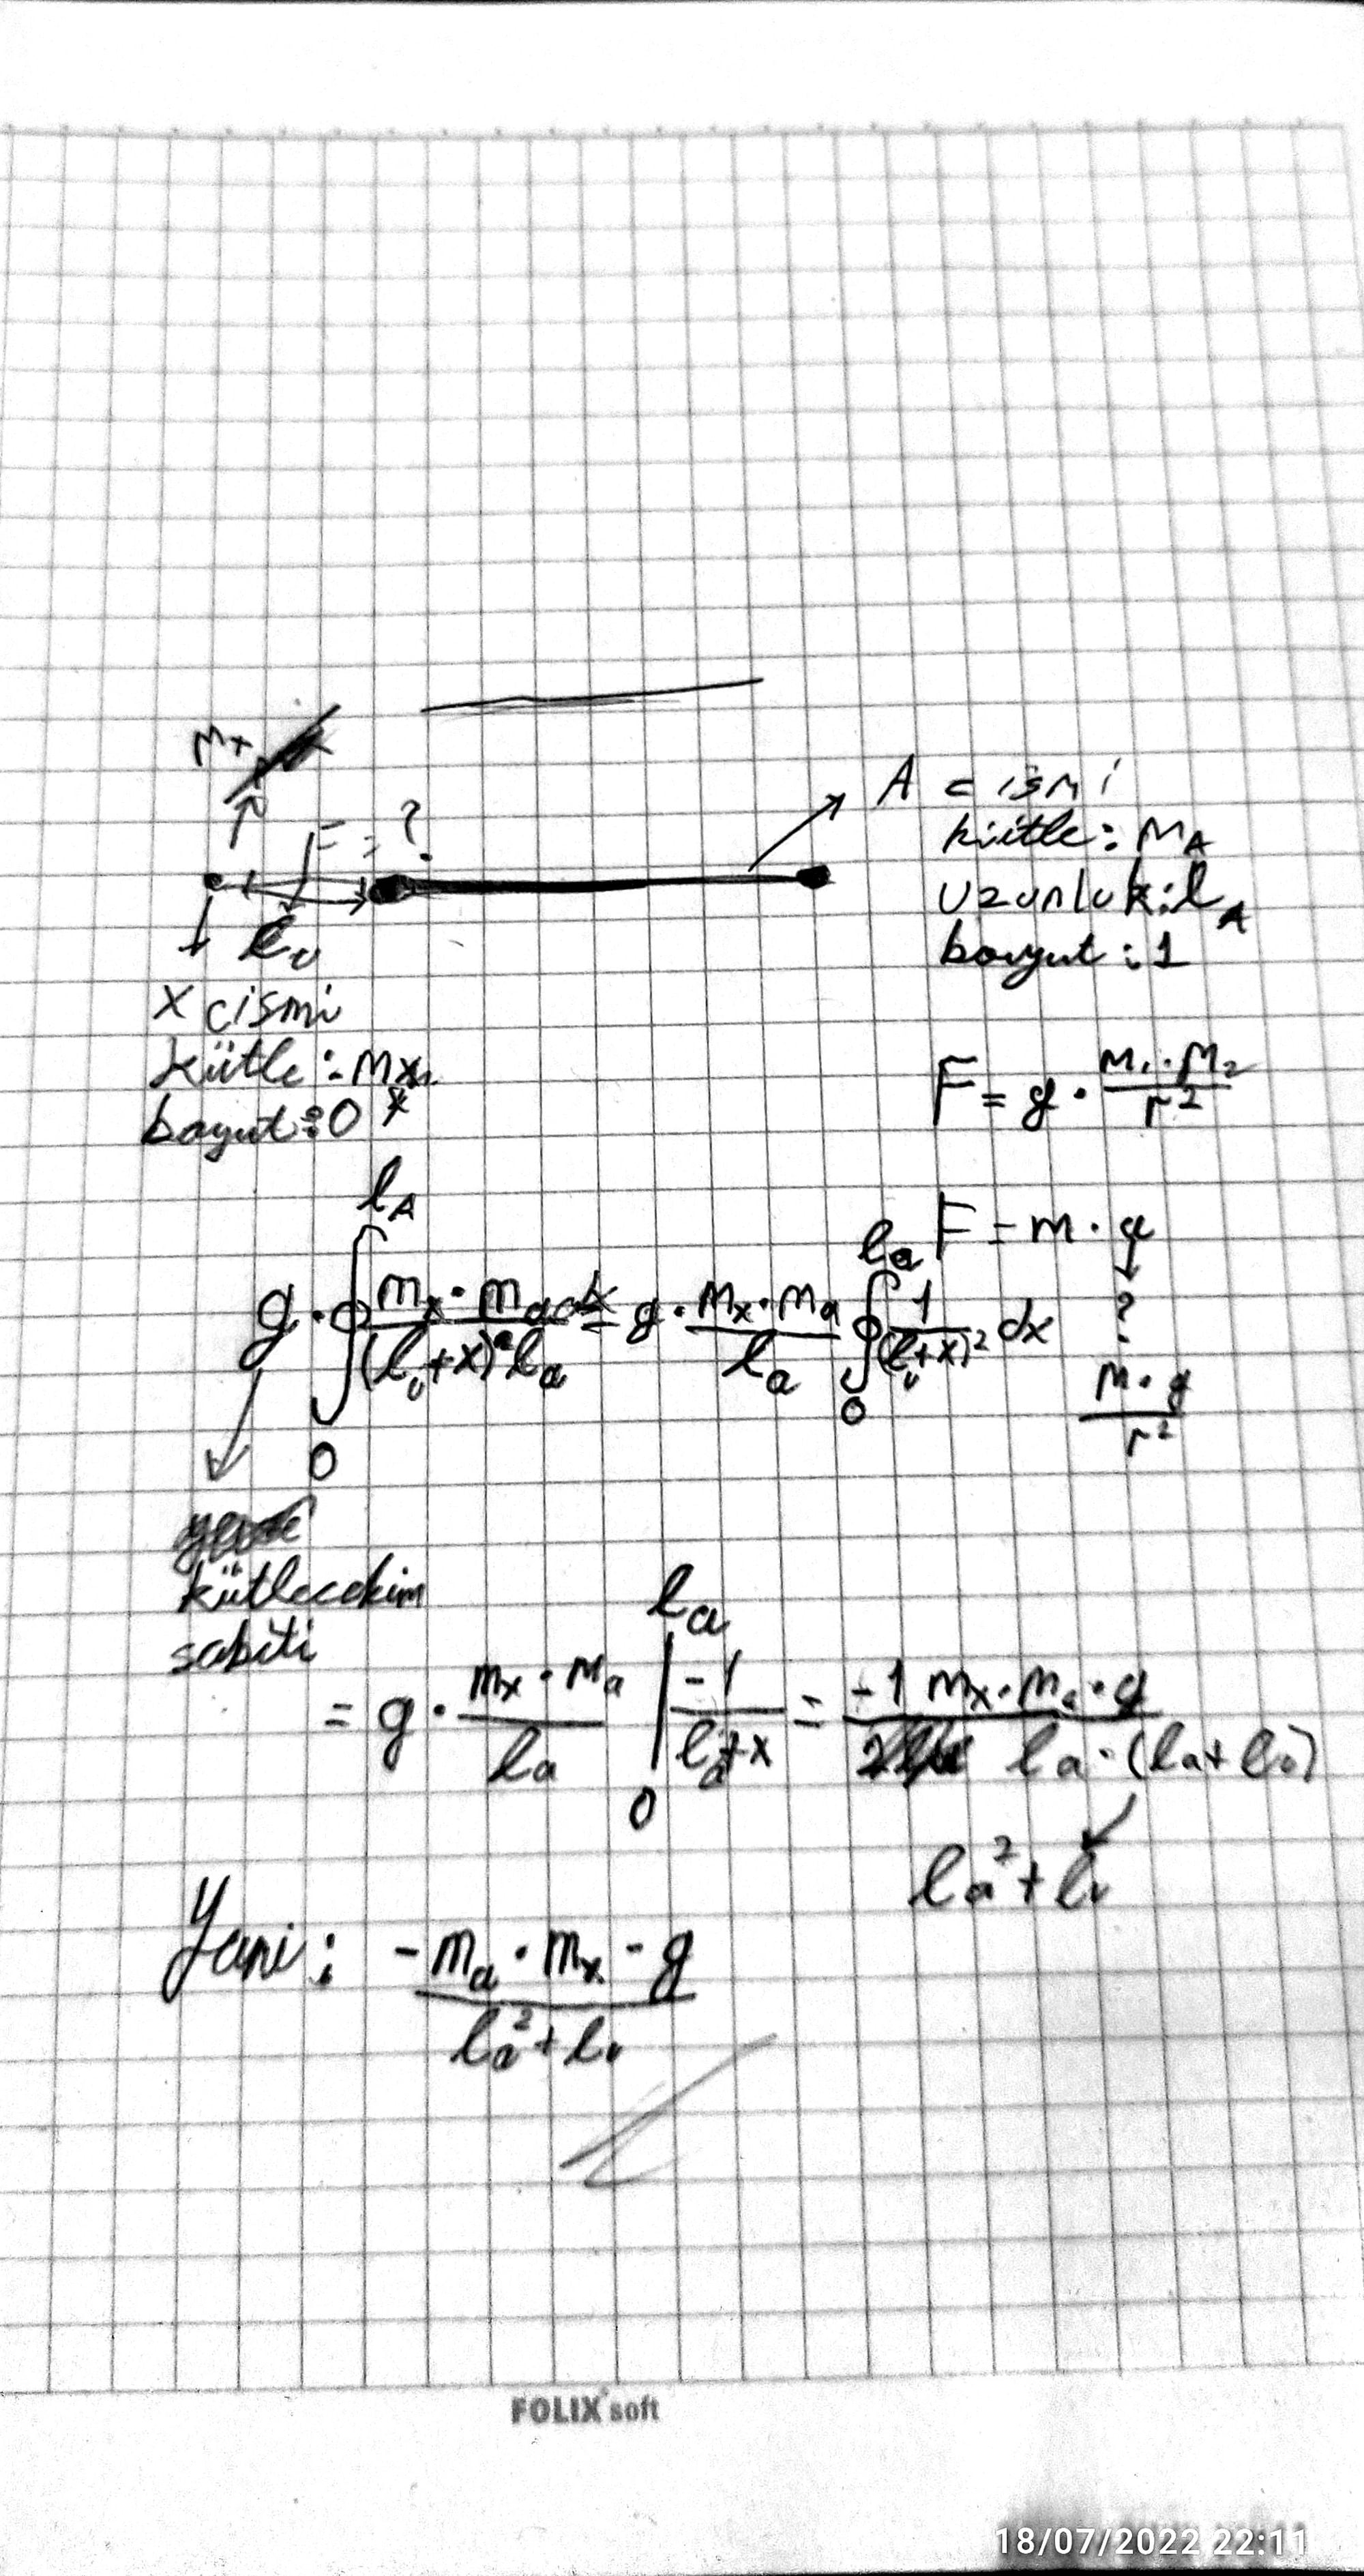 Mx
F = ?
l₀
A cismi
kütle: MA
uzunluk: lA
boyut: 1
x cismi
kütle: mx
boyut: 0
F = g · M₁·M₂ / r²
F = m · a
?
M·g / r²
g · ∫₀^lA mx·ma dx / (l₀+x)² la = g · mx·ma / la ∫₀^la 1 / (l₀+x)² dx
kütlecekim
sabiti
= g · mx·Ma / la |₀^la -1 / l₀+x = -1 mx·ma·g / la·(la+l₀)
la²+l₀
Yani: -ma·mx·g / la²+l₀
FOLIX soft
18/07/2022 22:11